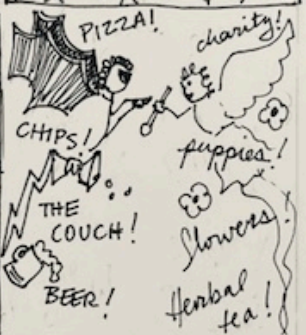 PIZZA!
charity!
CHIPS!
puppies!
THE
COUCH!
flowers!
BEER!
Herbal
tea!